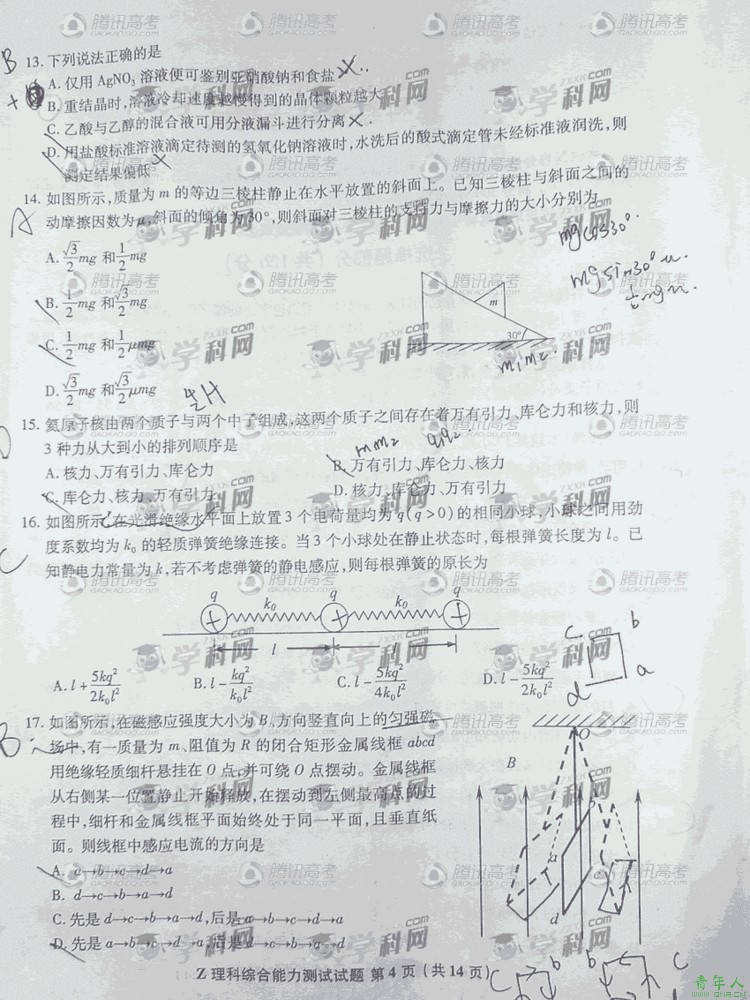 13. 下列说法正确的是
A. 仅用 AgNO₃ 溶液便可鉴别亚硝酸钠和食盐
B. 重结晶时,溶液冷却速度越慢得到的晶体颗粒越大
C. 乙酸与乙醇的混合液可用分液漏斗进行分离
D. 用盐酸标准溶液滴定待测的氢氧化钠溶液时,水洗后的酸式滴定管未经标准液润洗,则
测定结果偏低
14. 如图所示,质量为 m 的等边三棱柱静止在水平放置的斜面上。已知三棱柱与斜面之间的
动摩擦因数为 μ,斜面的倾角为 30°,则斜面对三棱柱的支持力与摩擦力的大小分别为
mgcos30°
A. √3/2 mg 和 1/2 mg
mgsin30° μ
B. 1/2 mg 和 √3/2 mg
1/2 mgμ
m
C. 1/2 mg 和 1/2 μmg
30°
m₁m₂
D. √3/2 mg 和 √3/2 μmg
15. 氦原子核由两个质子与两个中子组成,这两个质子之间存在着万有引力、库仑力和核力,则
3 种力从大到小的排列顺序是
A. 核力、万有引力、库仑力 B. 万有引力、库仑力、核力
C. 库仑力、核力、万有引力 D. 核力、库仑力、万有引力
16. 如图所示,在光滑绝缘水平面上放置 3 个电荷量均为 q(q>0)的相同小球,小球之间用劲
度系数均为 k₀ 的轻质弹簧绝缘连接。当 3 个小球处在静止状态时,每根弹簧长度为 l。已
知静电力常量为 k,若不考虑弹簧的静电感应,则每根弹簧的原长为
q k₀ q k₀ q
l l
A. l+5kq²/2k₀l² B. l-kq²/k₀l² C. l-5kq²/4k₀l² D. l-5kq²/2k₀l²
c b
d a
17. 如图所示,在磁感应强度大小为 B,方向竖直向上的匀强磁
场中,有一质量为 m、阻值为 R 的闭合矩形金属线框 abcd
用绝缘轻质细杆悬挂在 O 点,并可绕 O 点摆动。金属线框
从右侧某一位置静止开始释放,在摆动到左侧最高点的过
程中,细杆和金属线框平面始终处于同一平面,且垂直纸
面。则线框中感应电流的方向是
O
B
a
d
A. a→b→c→d→a
B. d→c→b→a→d
C. 先是 d→c→b→a→d,后是 a→b→c→d→a
D. 先是 a→b→c→d→a,后是 d→c→b→a→d
Z 理科综合能力测试试题 第 4 页(共 14 页)
腾讯高考
GAOKAO.QQ.COM
学科网
ZXXK.COM
青年人